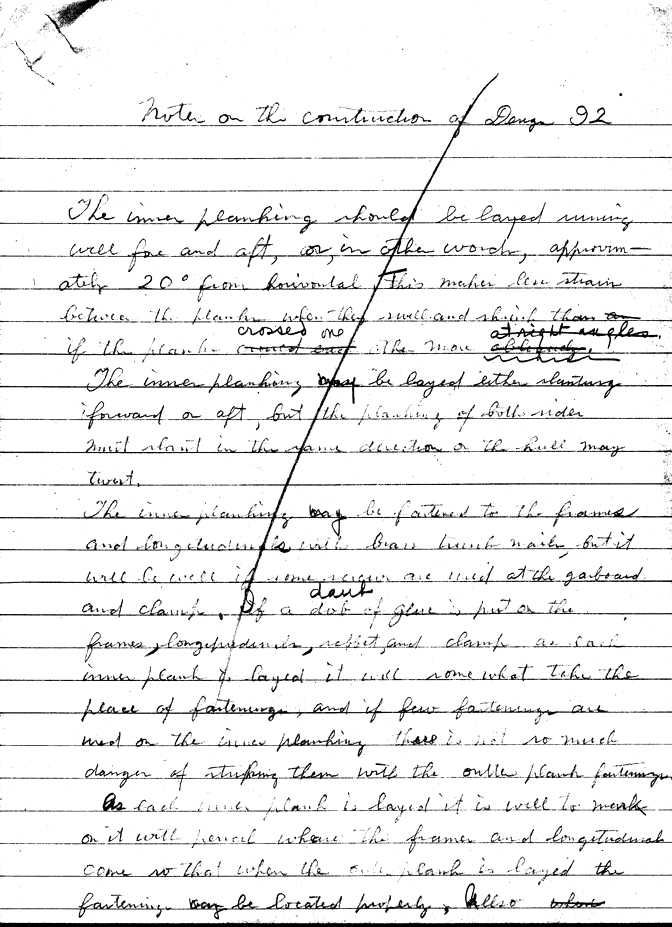 Notes on the construction of Design 92
The inner planking should be layed runing
well fore and aft, or, in other words, approxim-
ately 20° from horizontal. This makes less strain
between the planks when they swell and shrink than an
crossed one at right angles.
if the planks crossed each other more
The inner planking may be layed either slanting
forward or aft, but the planking of both sides
must slant in the same direction or the hull may
twist.
The inner planking may be fastened to the frames
and longitudinals with brass trunk nails, but it
will be well if some screws are used at the garboard
daub
and clamp. If a dob of glue is put on the
frames, longitudinals, rabbet, and clamp as each
inner plank is layed it will some what take the
place of fastenings, and if few fastenings are
used on the inner planking there is not so much
danger of striking them with the outer plank fastenings
As each inner plank is layed it is well to mark
on it with pencil where the frames and longitudinals
come so that when the outer plank is layed the
fastenings may be located properly, Allso when